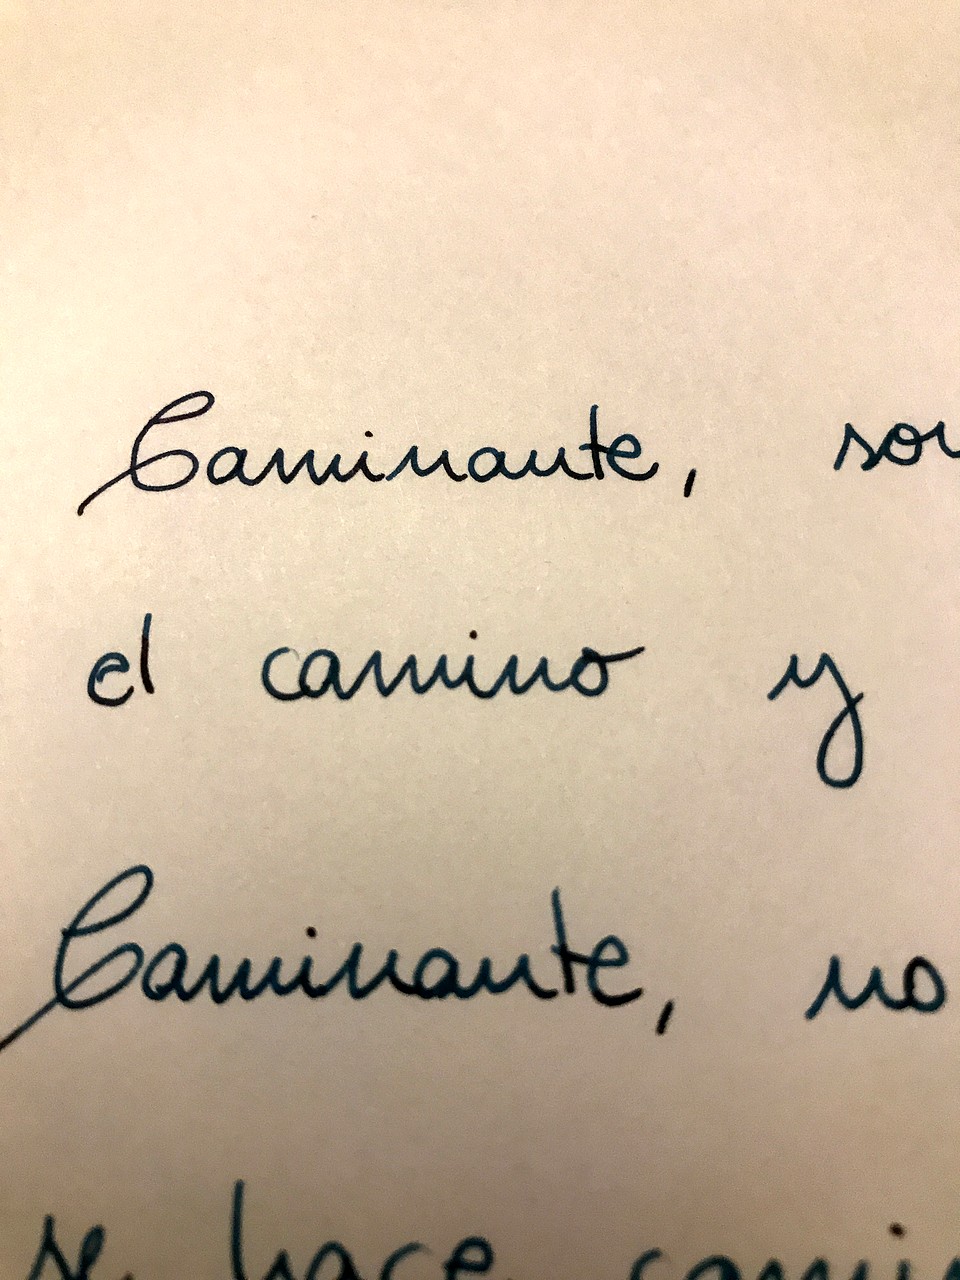 Caminante, son
el camino y
Caminante, no
se hace camin